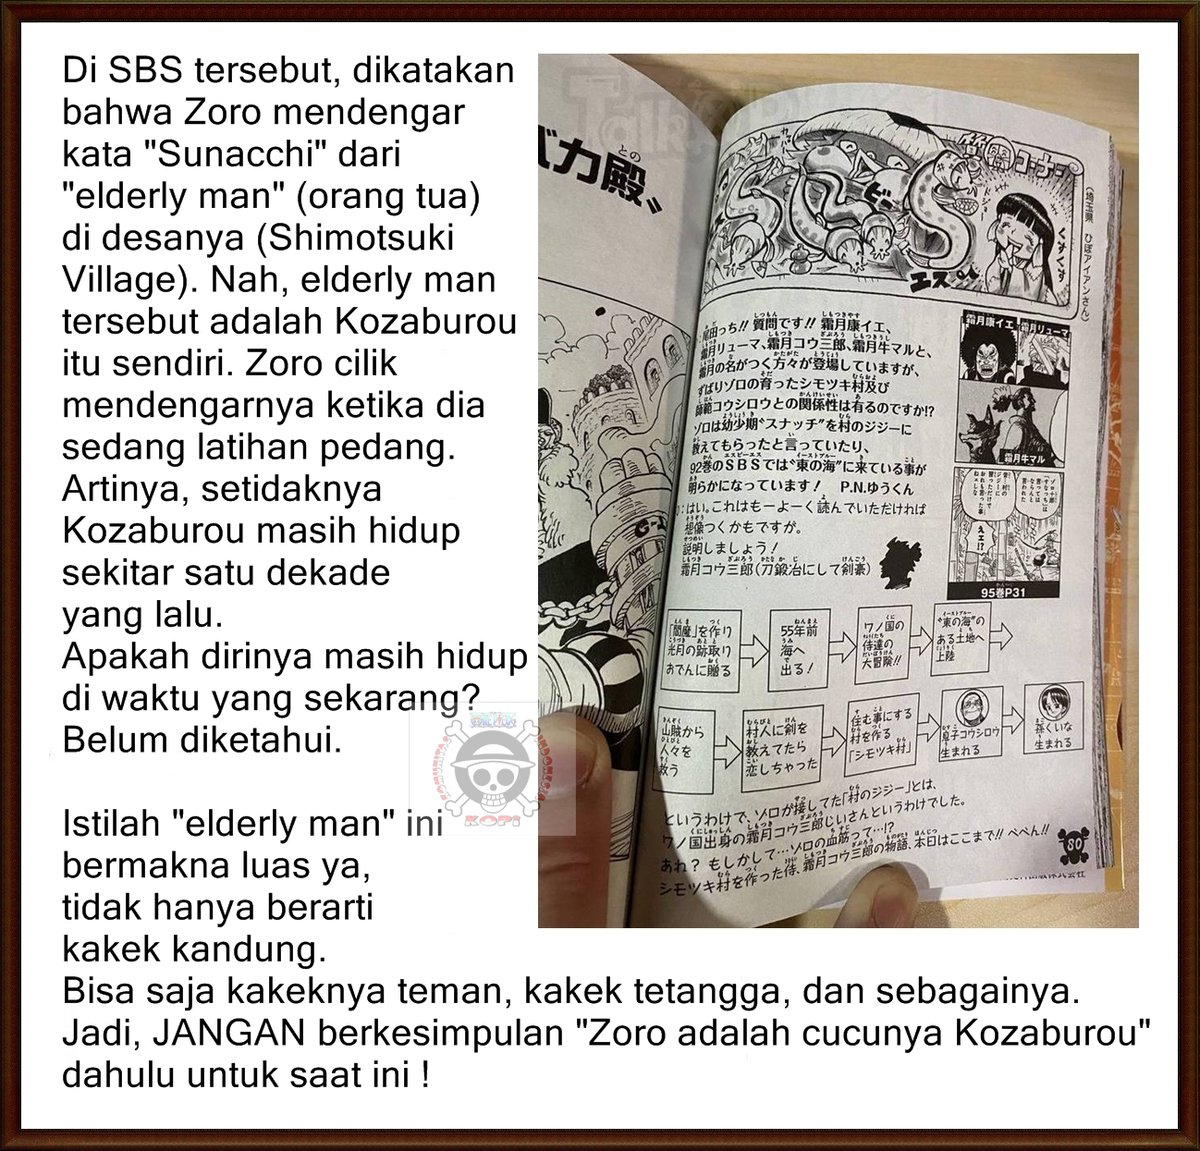 Di SBS tersebut, dikatakan
bahwa Zoro mendengar
kata "Sunacchi" dari
"elderly man" (orang tua)
di desanya (Shimotsuki
Village). Nah, elderly man
tersebut adalah Kozaburou
itu sendiri. Zoro cilik
mendengarnya ketika dia
sedang latihan pedang.
Artinya, setidaknya
Kozaburou masih hidup
sekitar satu dekade
yang lalu.
Apakan dirinya masih hidup
di waktu yang sekarang?
Belum diketahui.
Istilah "elderly man" ini
bermakna luas ya,
tidak hanya berarti
kakek kandung.
Bisa saja kakeknya teman, kakek tetangga, dan sebagainya.
Jadi, JANGAN berkesimpulan "Zoro adalah cucunya Kozaburou"
dahulu untuk saat ini !
バカ殿〟
質問コーナー
SBS
(埼玉県 ひぽアイアンさん)
尾田っち!! 質問です!! 霜月康イエ、
霜月リューマ、霜月コウ三郎、霜月牛マルと、
霜月の名がつく方々が登場していますが、
ずばりゾロの育ったシモツキ村及び
師範コウシロウとの関係性は有るのですか!?
ゾロは幼少期〝スナッチ〟を村のジジーに
教えてもらったと言っていたり、
92巻のSBSでは〝東の海〟に来ている事が
明らかになっています! P.N.ゆうくん
はい。これはもーよーく読んでいただければ
想像つくかもですが。
説明しましょう!
霜月コウ三郎(刀鍛冶にして剣豪)
霜月康イエ
霜月リューマ
霜月牛マル
95巻P31
「閻魔」を作り
光月の跡取り
おでんに贈る
55年前
海へ
出る!
ワノ国の
侍達の
大冒険!!
〝東の海〟の
ある土地へ
上陸
山賊から
人々を
救う
村人に剣を
教えてたら
恋しちゃった
住む事にする
村を作る
「シモツキ村」
息子コウシロウ
生まれる
孫くいな
生まれる
というわけで、ゾロが接してた「村のジジー」とは、
ワノ国出身の霜月コウ三郎じいさんというわけでした。
あれ? もしかして…ゾロの血筋って…!?
シモツキ村を作った侍、霜月コウ三郎の物語、本日はここまで!! ぺぺん!!
80
KOPI